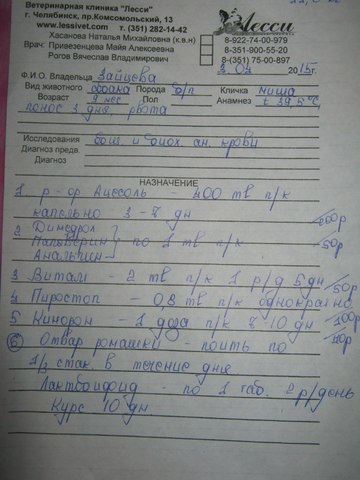 Ветеринарная клиника "Лесси"
г. Челябинск, пр.Комсомольский, 13
www.lessivet.com т. (351) 282-14-42
Хасанова Наталья Михайловна (к.в.н)
Врач: Привезенцева Майя Алексеевна
Рогов Вячеслав Владимирович
Лесси
8-922-74-00-979
8-351-900-55-20
8-(351) 75-00-897
Ф.И.О. Владельца Зайцева 3. 04 2015г.
Вид животного собака Порода б/п Кличка миша
Возраст 9 мес Пол Анамнез t 39,5°C
понос 3 дня, рвота
Исследования общ. и биох. ан. крови
Диагноз предв.
Диагноз
НАЗНАЧЕНИЕ
1 р-ор Ацесоль - 400 мл п/к
капельно 3-7 дн 200р
2 Димедрол
Папаверин по 1 мл п/к 50р
Анальгин
3 Витам - 2 мл п/к 1 р/д 5 дн 50р
4 Пиростоп - 0,8 мл п/к однократно
5 Кинорон - 1 доза п/к 7-10 дн 100р
6 Отвар ромашки - поить по
1/3 стак. в течение дня
Лактобифид - по 1 таб. 2 р/день
Курс 10 дн